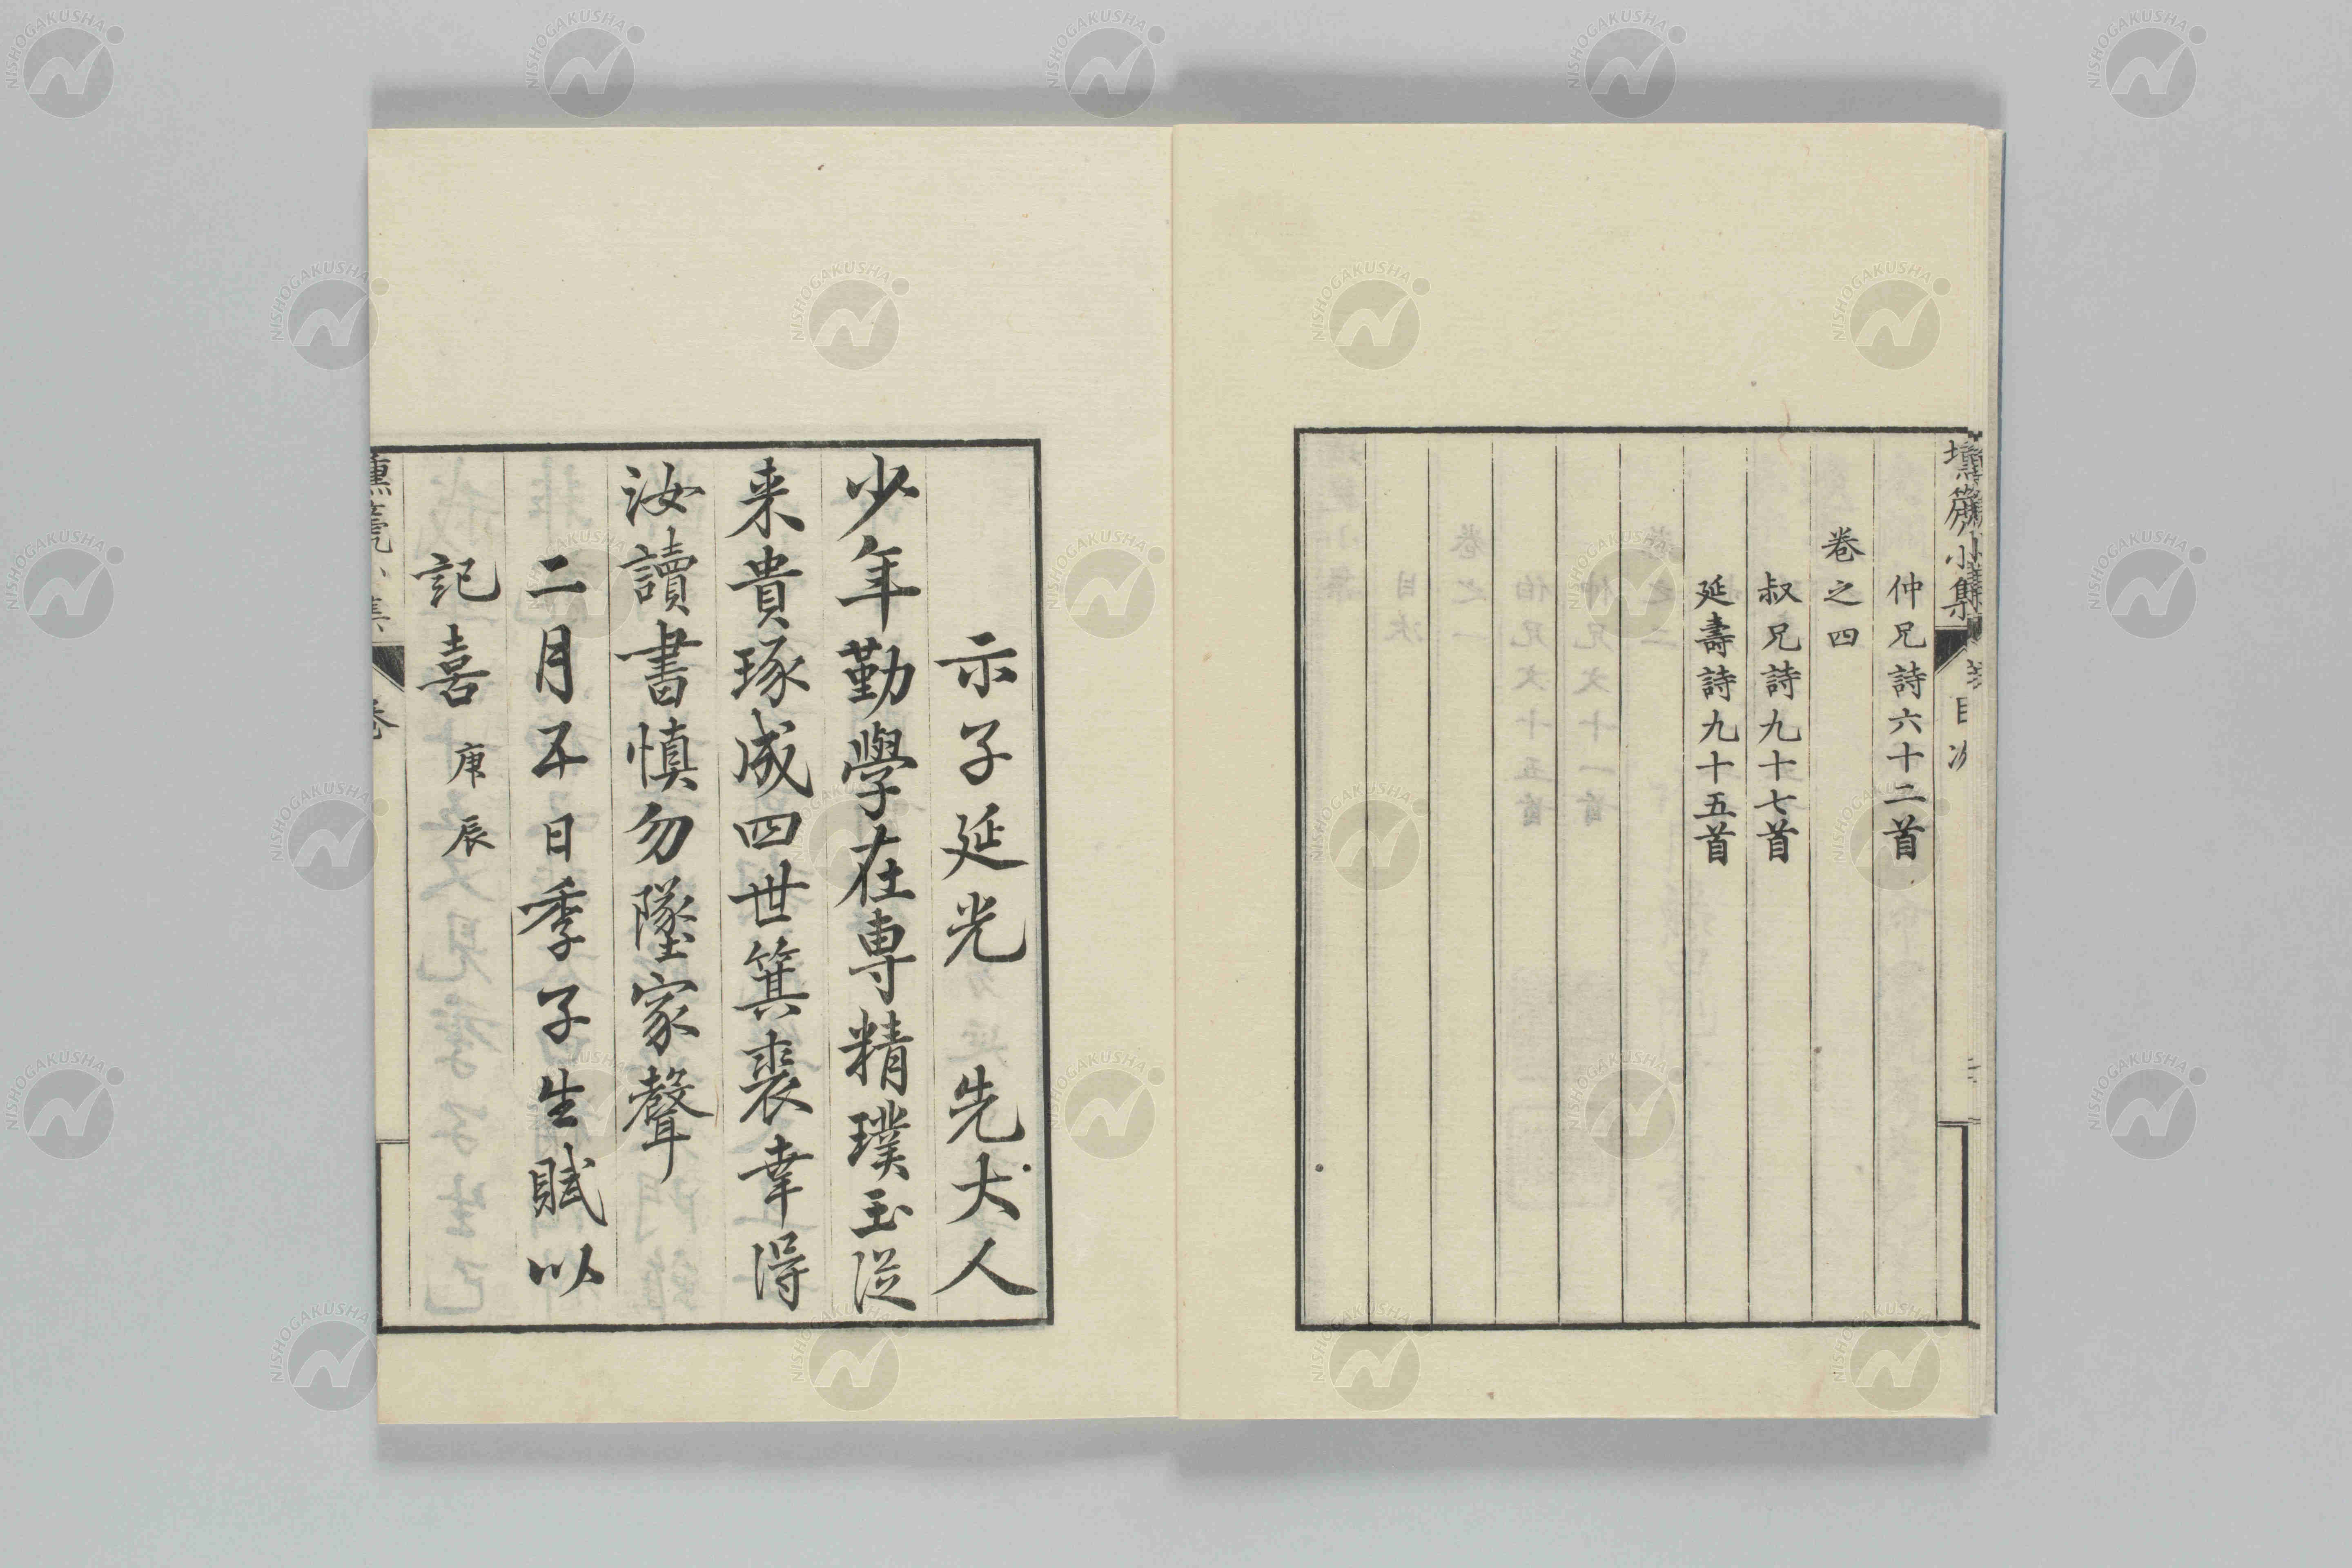 壎箎小集 目次
仲兄詩六十二首
卷之四
叔兄詩九十七首
延壽詩九十五首
示子延光 先大人
少年勤學在専精璞玉従
来貴琢成四世箕裘幸得
汝讀書慎勿墜家聲
二月五日季子生賦以
記喜 庚辰
NISHOGAKUSHA